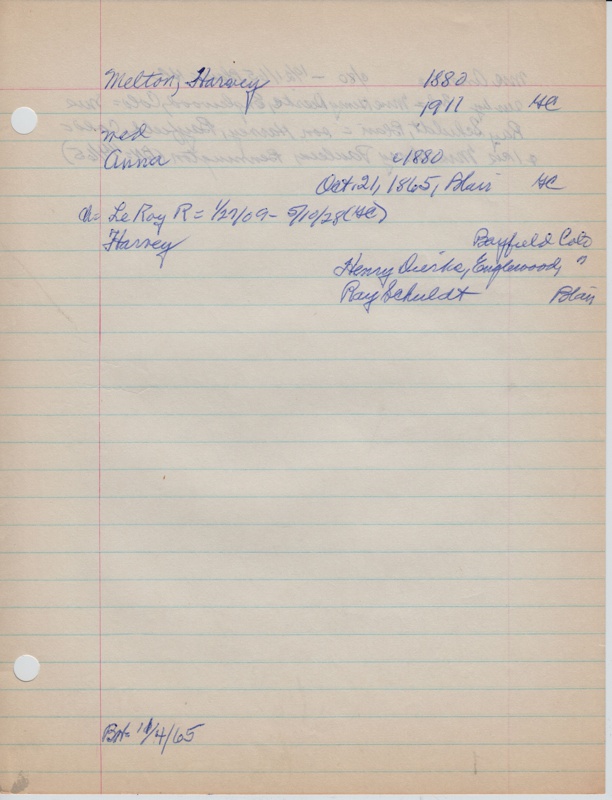 Melton, Harvey 1880
1911 HC
med
Anna c1880
Oct. 21, 1865, Blair HC
Ch= LeRoy R = 1/27/09 - 5/10/28 (HC)
Harvey Bayfield Colo
Henry Dierks, Englewood, "
Ray Schuldt Blair
BH= 11/4/65